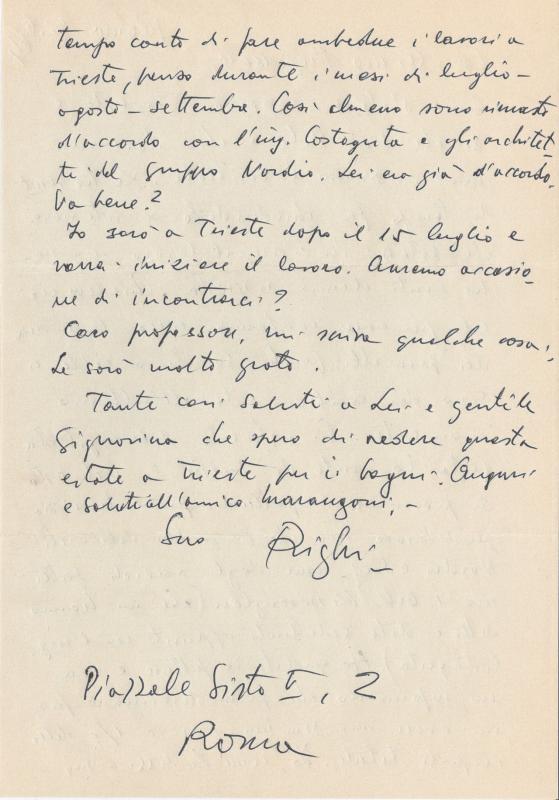 tempo conto di fare ambedue i lavori a
Trieste, penso durante i mesi di luglio –
agosto – settembre. Così almeno sono rimasto
d'accordo con l'ing. Costaguta e gli architet-
ti del gruppo Nordio. Lei era già d'accordo.
Va bene?
Io sarò a Trieste dopo il 15 luglio e
vorrei iniziare il lavoro. Avremo occasio-
ne di incontrarci?
Caro professore, mi scriva qualche cosa;
Le sarò molto grato.
Tanti cari saluti a Lei e gentile
Signorina che spero di vedere questa
estate a Trieste per i bagni. Auguri
e saluti all'amico Marangoni. –
Suo Righi –
Piazzale Sisto V, 2
Roma